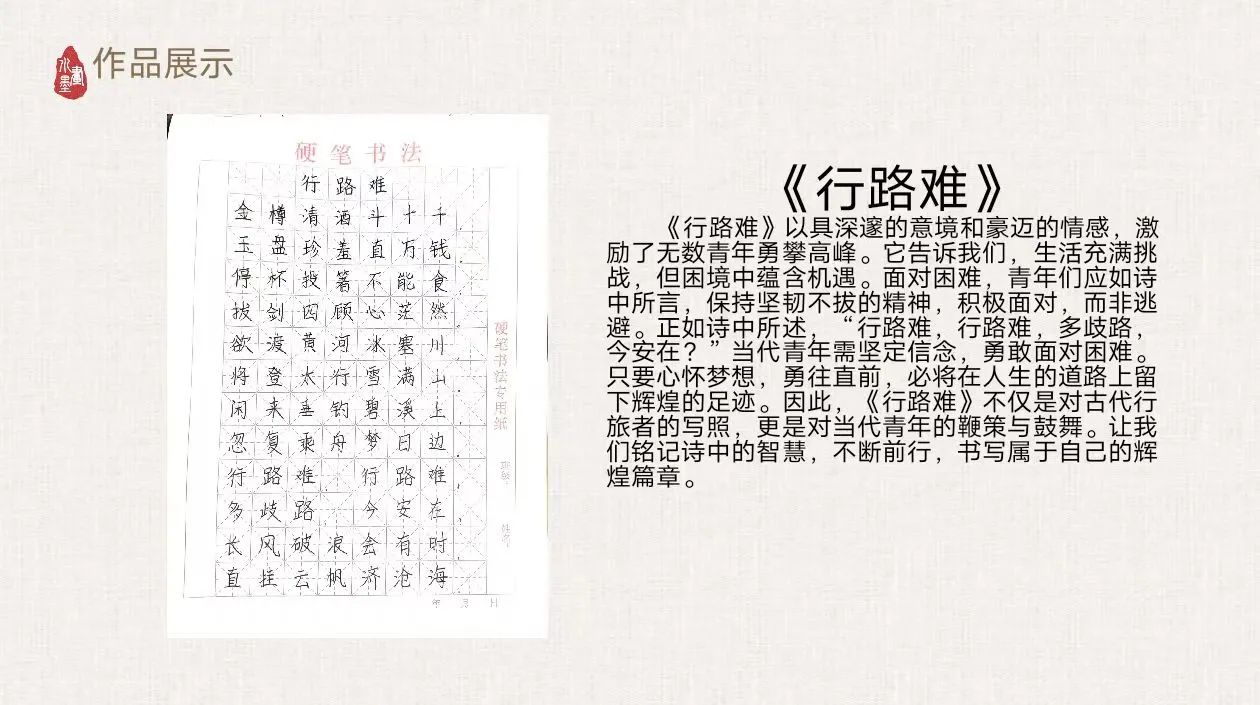 水墨画
作品展示
硬笔书法
行路难
金樽清酒斗十千
玉盘珍羞直万钱
停杯投箸不能食
拔剑四顾心茫然
欲渡黄河冰塞川
将登太行雪满山
闲来垂钓碧溪上
忽复乘舟梦日边
行路难 行路难
多歧路 今安在
长风破浪会有时
直挂云帆济沧海
硬笔书法专用纸
班级
姓名
年 月 日
《行路难》
《行路难》以具深邃的意境和豪迈的情感，激
励了无数青年勇攀高峰。它告诉我们，生活充满挑
战，但困境中蕴含机遇。面对困难，青年们应如诗
中所言，保持坚韧不拔的精神，积极面对，而非逃
避。正如诗中所述，“行路难，行路难，多歧路，
今安在？”当代青年需坚定信念，勇敢面对困难。
只要心怀梦想，勇往直前，必将在人生的道路上留
下辉煌的足迹。因此，《行路难》不仅是对古代行
旅者的写照，更是对当代青年的鞭策与鼓舞。让我
们铭记诗中的智慧，不断前行，书写属于自己的辉
煌篇章。